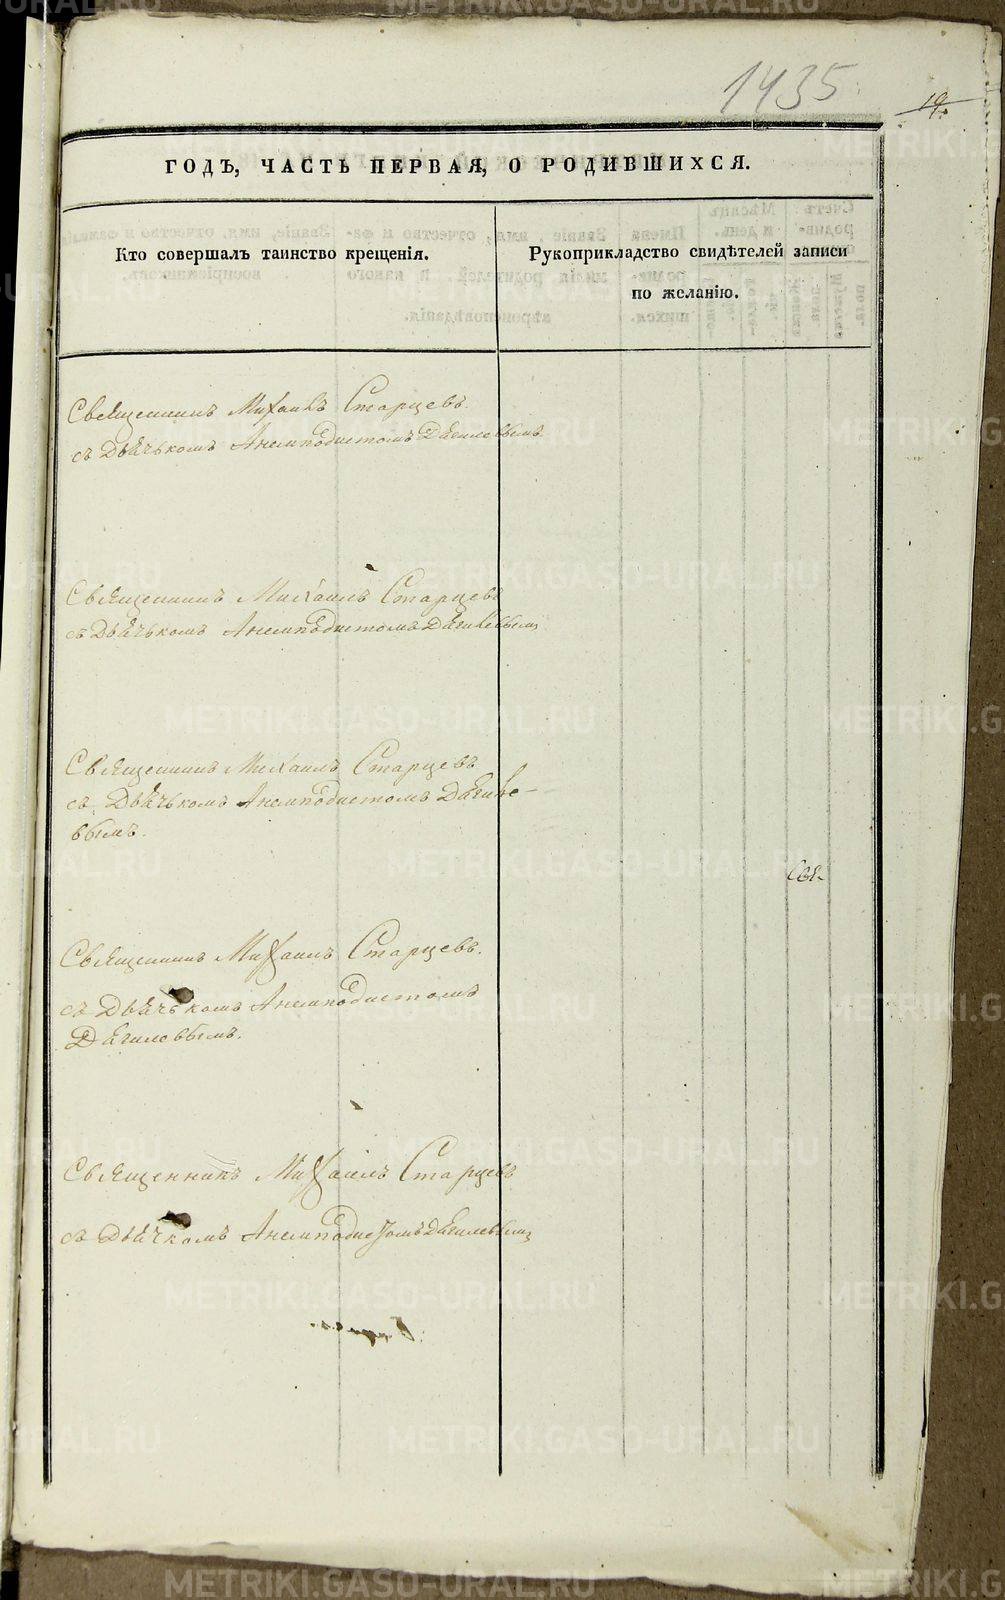 1435
19.
ГОДЪ, ЧАСТЬ ПЕРВАЯ, О РОДИВШИХСЯ.
Кто совершалъ таинство крещенія.
Рукоприкладство свидѣтелей записи
по желанію.
Священникъ Михаилъ Старцевъ.
съ Дьячькомъ Анемподистомъ Дягилевымъ
Священникъ Михаилъ Старцевъ
съ Дьячькомъ Анемподистомъ Дягилевымъ
Священникъ Михаилъ Старцевъ
съ Дьячькомъ Анемподистомъ Дягиле-
вымъ.
Священникъ Михаилъ Старцевъ.
съ Дьячькомъ Анемподистомъ
Дягилевымъ.
Священникъ Михаилъ Старцевъ
съ Дьячкомъ Анемподистомъ Дягилевымъ
METRIKI.GASO-URAL.RU